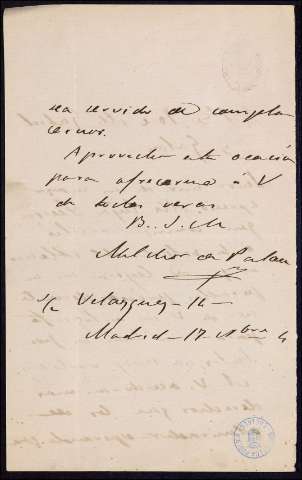 sea servido de complacernos.
Aprovecho esta ocasión
para ofrecerme a V
de todas veras
B. S. M
Melchor de Palau
S/c Velazquez - 12 -
Madrid - 17 - Nbre